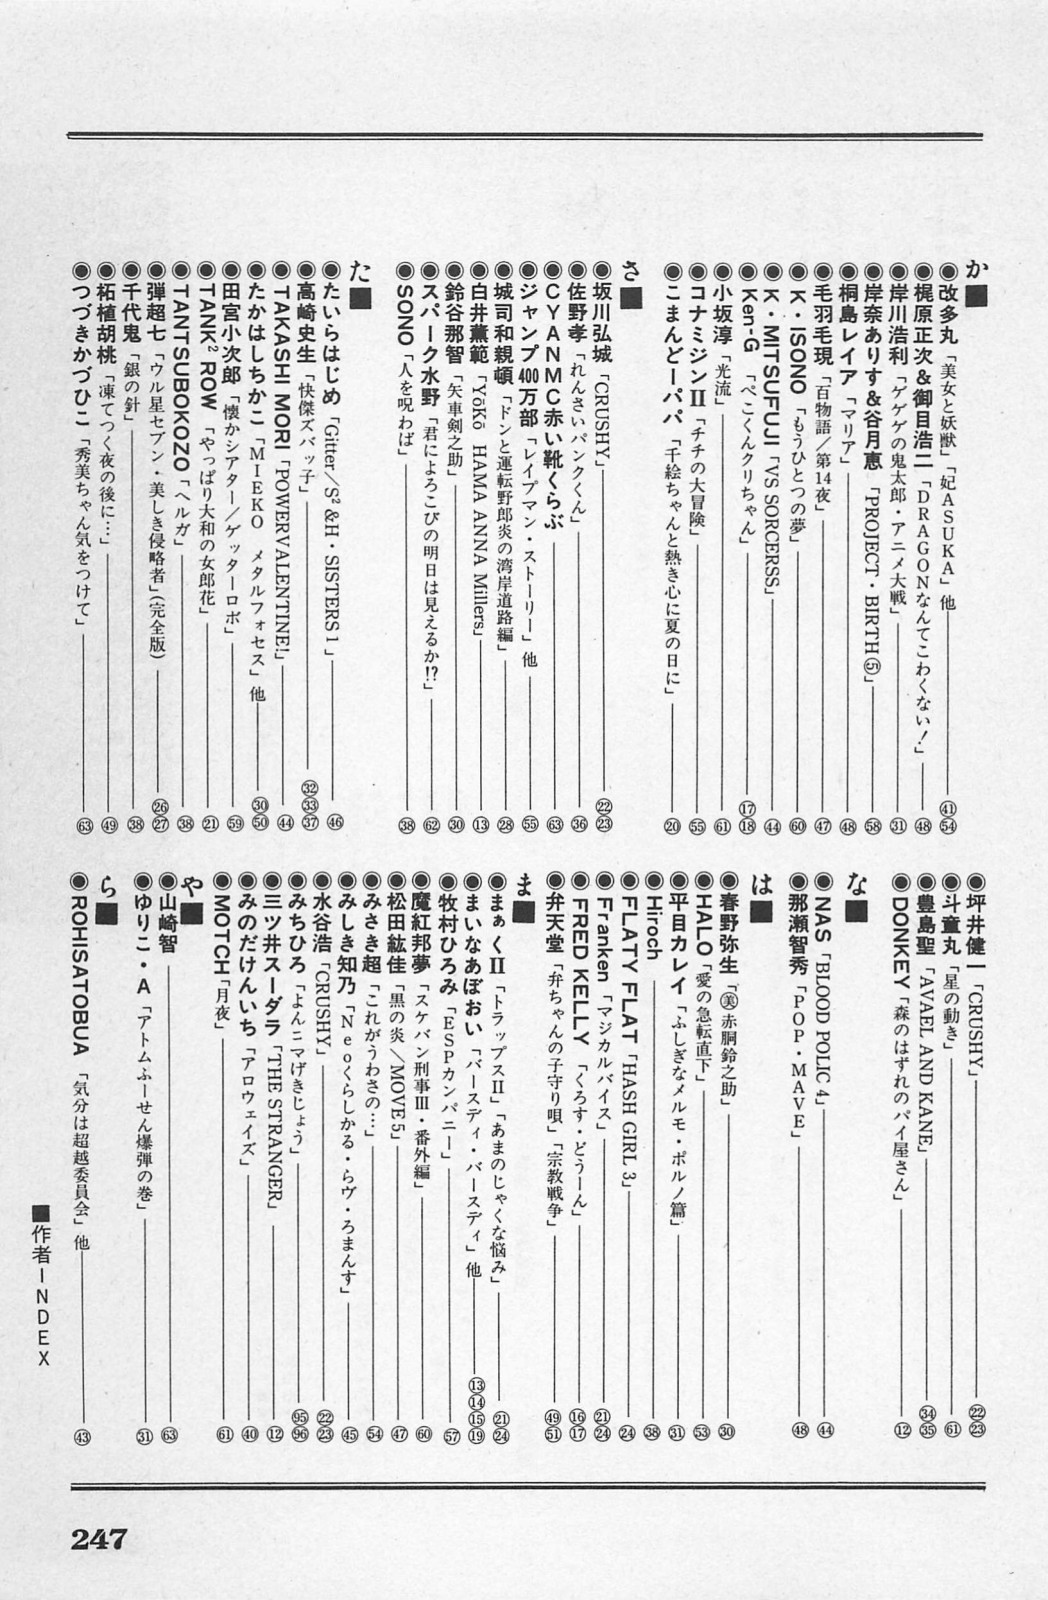 か■
◉改多丸「美女と妖獣」「妃ASUKA」他 ㊶㊴
◉梶原正次&御目浩二「DRAGONなんてこわくない!」 ㊽
◉岸川浩利「ゲゲゲの鬼太郎・アニメ大戦」 ㉛
◉岸奈ありす&谷月恵「PROJECT・BIRTH⑤」 58
◉桐島レイア「マリア」 ㊽
◉毛羽毛現「百物語/第14夜」 ㊼
◉K・ISONO「もうひとつの夢」 60
◉K・MITSUFUJI「VS SORCERSS」 ㊹
◉Ken-G「ぺこくんクリちゃん」 ⑰⑱
◉小坂淳「光流」 61
◉コナミジンⅡ「チチの大冒険」 55
◉こまんどーパパ「千絵ちゃんと熱き心に夏の日に」 ⑳
さ■
◉坂川弘城「CRUSHY」 ㉒㉓
◉佐野孝「れんさいパンクくん」 ㊱
◉CYANMC赤い靴くらぶ 63
◉ジャンプ400万部「レイプマン・ストーリー」他 55
◉城司和親頓「ドンと運転野郎炎の湾岸道路編」 ㉘
◉白井薫範「YōKō HAMA ANNA Millers」 ⑬
◉鈴谷那智「矢車剣之助」 ㉚
◉スパーク水野「君によろこびの明日は見えるか!?」 62
◉SONO「人を呪わば」 ㊳
た■
◉たいらはじめ「Gitter/S²&H・SISTERS1」 ㊻
◉高崎史生「快傑ズバッ子」 ㉜㉝㊲
◉TAKASHI MORI「POWERVALENTINE!」 ㊹
◉たかはしちかこ「MIEKO メタルフォセス」他 ㉚㊿
◉田宮小次郎「懐かシアター/ゲッターロボ」 59
◉TANK² ROW「やっぱり大和の女郎花」 ㉑
◉TANTSUBOKOZO「ヘルガ」 ㊳
◉弾超七「ウル星セブン・美しき侵略者」(完全版) ㉖㉗
◉千代鬼「銀の針」 ㊳
◉柘植胡桃「凍てつく夜の後に…」 ㊾
◉つづきかづひこ「秀美ちゃん気をつけて」 63
◉坪井健一「CRUSHY」 ㉒㉓
◉斗童丸「星の動き」 61
◉豊島聖「AVAEL AND KANE」 ㉞㉟
◉DONKEY「森のはずれのパイ屋さん」 ⑫
な■
◉NAS「BLOOD POLIC 4」 ㊹
◉那瀬智秀「POP・MAVE」 ㊽
は■
◉春野弥生「㊤美赤胴鈴之助」 ㉚
◉HALO「愛の急転直下」 53
◉平目カレイ「ふしぎなメルモ・ポルノ篇」 ㉛
◉Hiroch ㊳
◉FLATY FLAT「HASH GIRL 3」 ㉔
◉Franken「マジカルバイス」 ㉑㉔
◉FRED KELLY「くろす・どうーん」 ⑯⑰
◉弁天堂「弁ちゃんの子守り唄」「宗教戦争」 ㊾51
ま■
◉まぁくⅡ「トラップスⅡ」「あまのじゃくな悩み」 ㉑㉔
◉まいなあぼおい「バースディ・バースディ」他 ⑬⑭⑮⑲
◉牧村ひろみ「ESPカンパニー」 57
◉魔紅邦夢「スケバン刑事Ⅲ・番外編」 60
◉松田紘佳「黒の炎/MOVE5」 ㊼
◉みさき超「これがうわさの…」 54
◉みしき知乃「Neoくらしかる・らヴ・ろまんす」 ㊺
◉水谷浩「CRUSHY」 ㉒㉓
◉みちひろ「よんニマげきじょう」 95 96
◉三ツ井スーダラ「THE STRANGER」 ⑫
◉みのだけんいち「アロウェイズ」 ㊵
◉MOTCH「月夜」 61
や■
◉山崎智 63
◉ゆりこ・A「アトムふーせん爆弾の巻」 ㉛
ら■
◉ROHISATOBUA「気分は超越委員会」他 ㊸
■作者INDEX
247